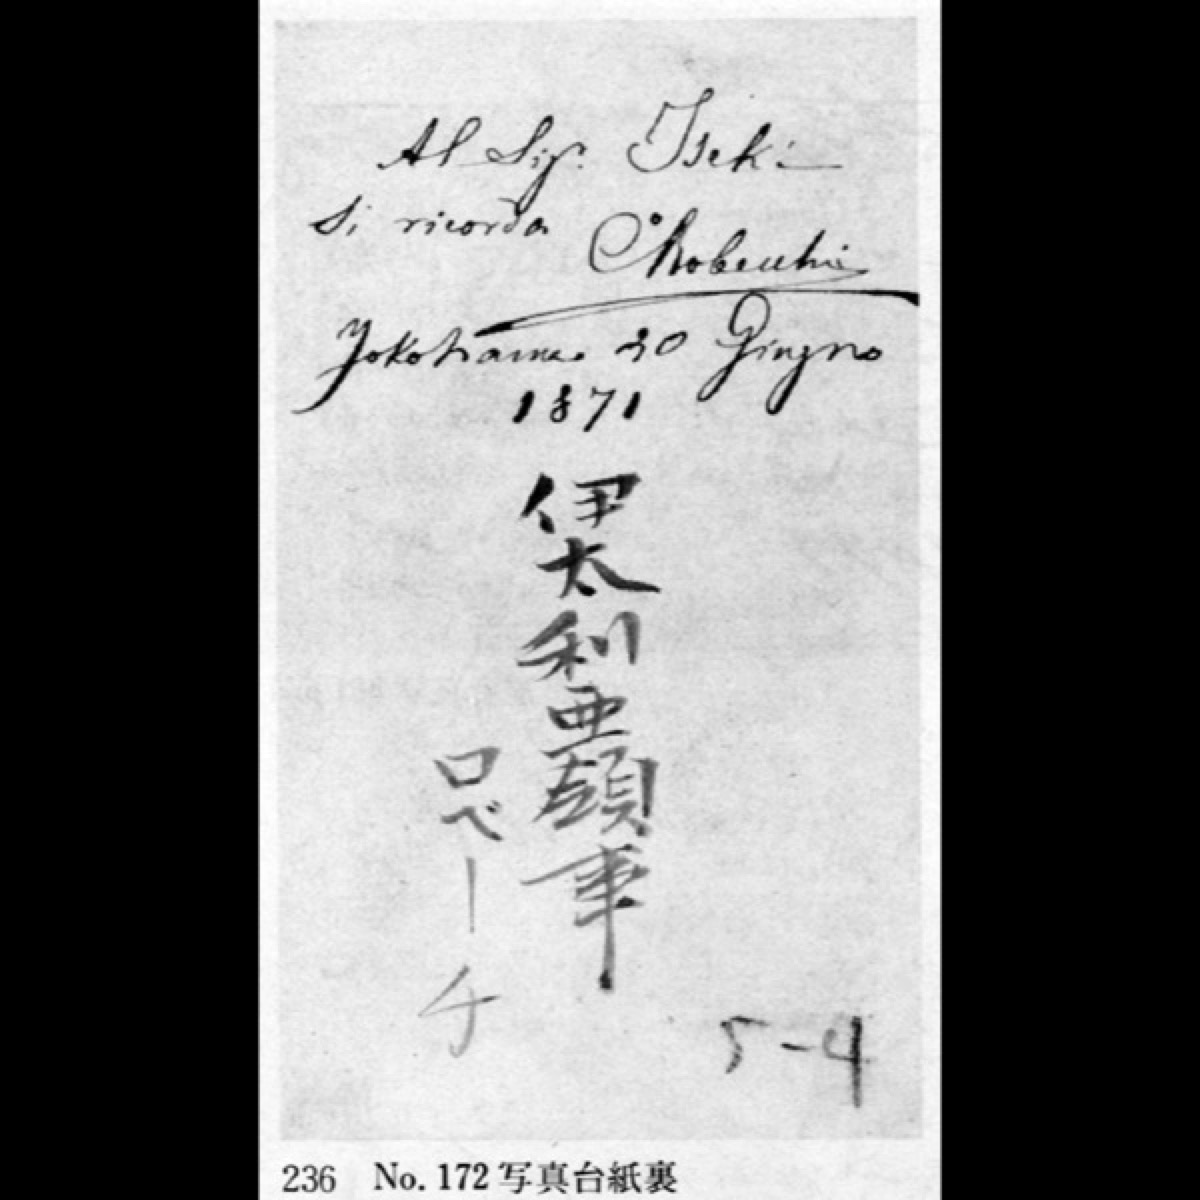 Al Sig. Iseki
Si ricorda CRobecchi
Yokohama 30 Giugno
1871
伊太利亜領事
ロベーチ
5-4
236 No. 172 写真台紙裏